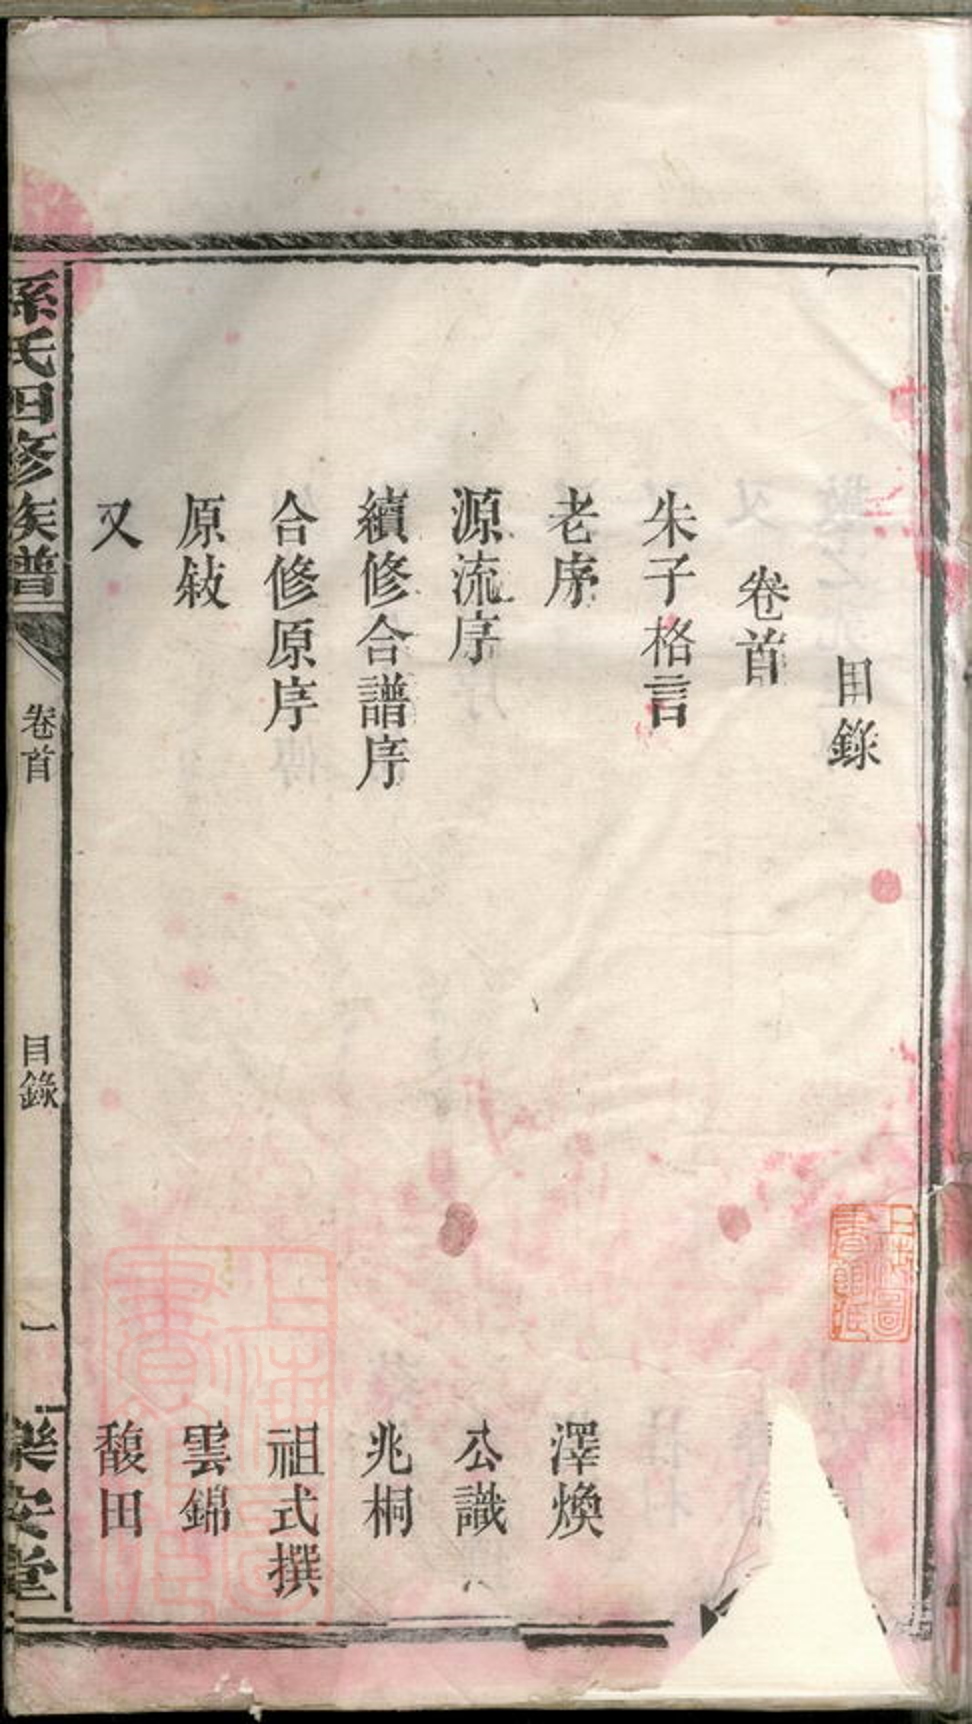 目錄
卷首
朱子格言
老序 澤煥
源流序 公識
續修合譜序 兆桐
合修原序 祖式撰
原敍 雲錦
又 馥田
孫氏四修族譜 卷首 目錄 一 樂安堂
上海圖書館藏
上海圖書館藏